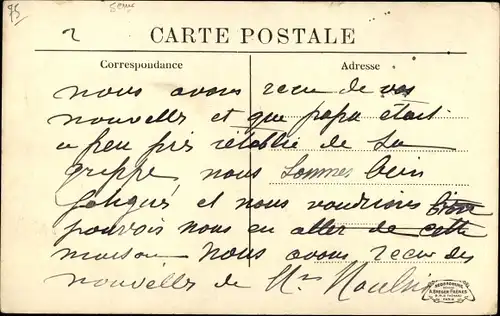 75
2
Seine
CARTE POSTALE
Correspondance
Adresse
nous avons recu de vos
nouvelles et que papa était
a peu près rétablie de sa
grippe nous sommes bein
fatigués et nous voudrions bien
pouvoir nous en aller de cette
maison nous avons recu des
nouvelles de Mr Moulin